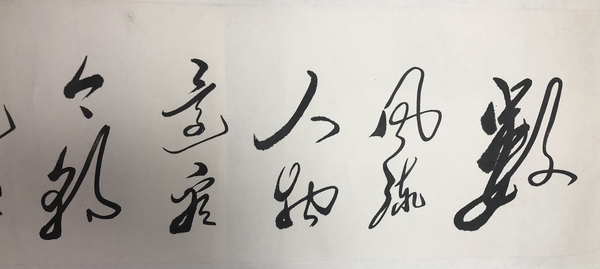 數
风流
人物
還看
今朝